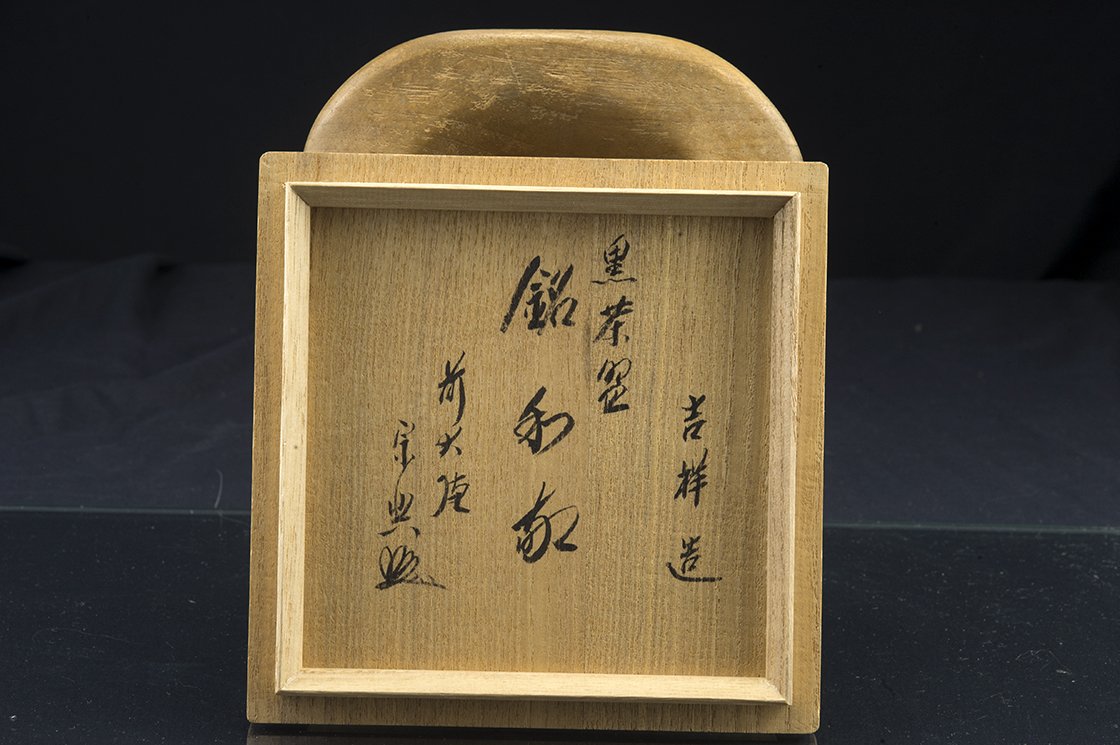 吉祥造
黒茶盌
銘 和敬
前大徳
宗興